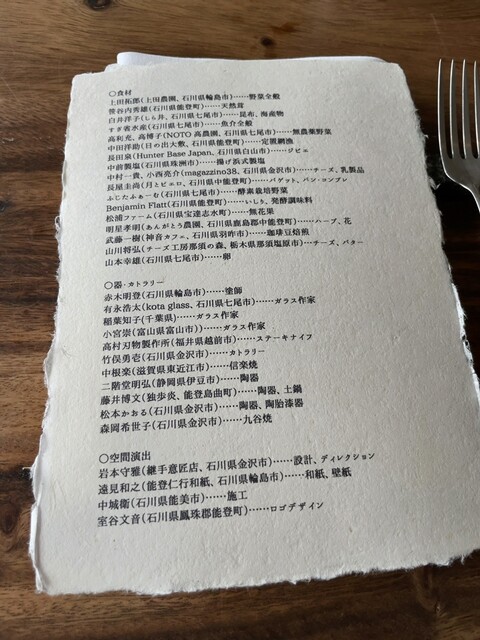 〇食材
上田拓郎(上田農園、石川県輪島市)……野菜全般
笹谷内秀雄(石川県能登町)……天然茸
白井洋子(しら井、石川県七尾市)……昆布、海産物
すぎ省水産(石川県七尾市)……魚介全般
高利充、高博子(NOTO 高農園、石川県七尾市)……無農薬野菜
中田洋助(日の出大敷、石川県能登町)……定置網漁
長田泉(Hunter Base Japan、石川県白山市)……ジビエ
中前製塩(石川県珠洲市)……揚げ浜式製塩
中村一貴、小西亮介(magazzino38、石川県金沢市)……チーズ、乳製品
長屋圭尚(月とピエロ、石川県中能登町)……バゲット、パン・コンプレ
ふじたふぁーむ(石川県七尾市)……酵素栽培野菜
Benjamin Flatt(石川県能登町)……いしり、発酵調味料
松浦ファーム(石川県宝達志水町)……無花果
明星孝明(あんがとう農園、石川県鹿島郡中能登町)……ハーブ、花
武藤一樹(神音カフェ、石川県羽咋市)……珈琲豆焙煎
山川将弘(チーズ工房那須の森、栃木県那須塩原市)…チーズ、バター
山本幸雄(石川県七尾市)……卵
〇器・カトラリー
赤木明登(石川県輪島市)……塗師
有永浩太(kota glass、石川県七尾市)……ガラス作家
稲葉知子(千葉県)……ガラス作家
小宮崇(富山県富山市))……ガラス作家
高村刃物製作所(福井県越前市)……ステーキナイフ
竹俣勇壱(石川県金沢市)……カトラリー
中根楽(滋賀県東近江市)……信楽焼
二階堂明弘(静岡県伊豆市)……陶器
藤井博文(独歩炎、能登島曲町)……陶器、土鍋
松本かおる(石川県金沢市)……陶器、陶胎漆器
森岡希世子(石川県金沢市)……九谷焼
〇空間演出
岩本守雅(継手意匠店、石川県金沢市)……設計、ディレクション
遠見和之(能登仁行和紙、石川県輪島市)……和紙、壁紙
中城衛(石川県能美市)……施工
室谷文音(石川県鳳珠郡能登町)……ロゴデザイン